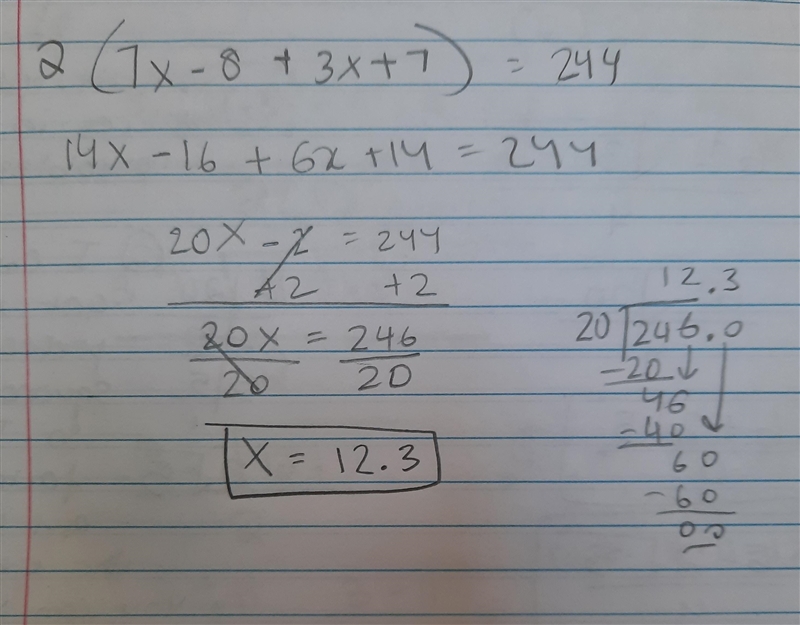 2 (7x - 8 + 3x + 7) = 244
14x - 16 + 6x + 14 = 244
20x - 2 = 244
+2 +2
20x = 246
20 20
x = 12.3
12.3
20 246.0
-20
46
-40
60
-60
00